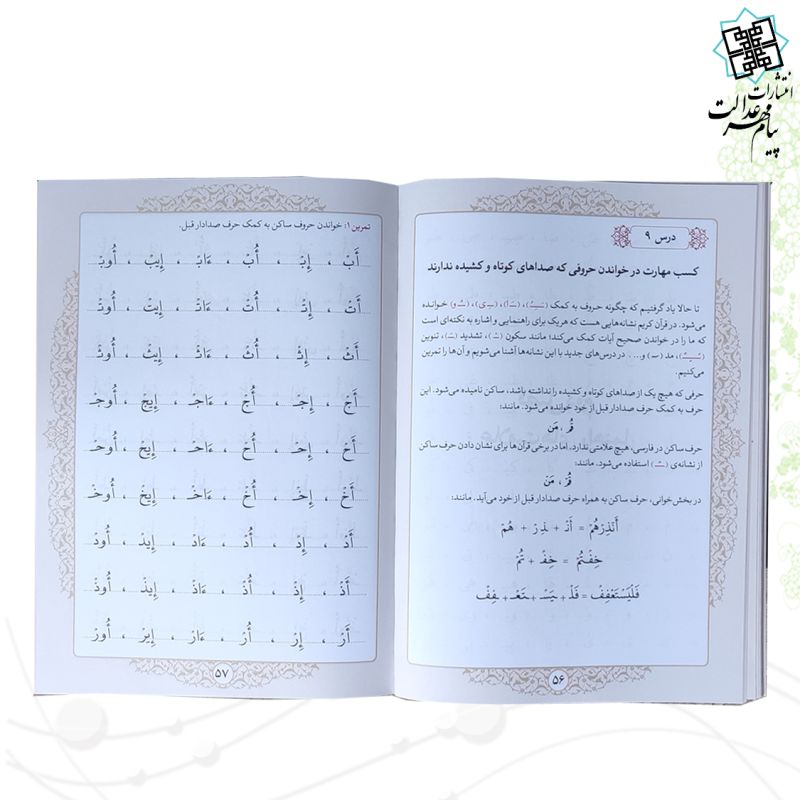 انتشارات
پیام مهر عدالت
درس ۹
کسب مهارت در خواندن حروفی که صداهای کوتاه و کشیده ندارند
تا حالا یاد گرفتیم که چگونه حروف به کمک (ـَـِـُ)، (ـَ ا)، (ـِ ی)، (ـُ و) خوانده
می‌شود. در قرآن کریم نشانه‌هایی هست که هریک برای راهنمایی و اشاره به نکته‌ای است
که ما را در خواندن صحیح آیات کمک می‌کند؛ مانند سکون (ـْ)، تشدید (ـّ)، تنوین
(ـًـٍـٌ)، مد (ـٓ) و... . در درس‌های جدید با این نشانه‌ها آشنا می‌شویم و آن‌ها را تمرین
می‌کنیم.
حرفی که هیچ یک از صداهای کوتاه و کشیده را نداشته باشد، ساکن نامیده می‌شود. این
حرف به کمک حرف صدادار قبل از خود خوانده می‌شود. مانند:
قُر ، مَن
حرف ساکن در فارسی، هیچ علامتی ندارد. اما در برخی قرآن‌ها برای نشان دادن حرف ساکن
از نشانه‌ی (ـْ) استفاده می‌شود. مانند:
قُرْ ، مَنْ
در بخش‌خوانی، حرف ساکن به همراه حرف صدادار قبل از خود می‌آید. مانند:
أَنْذِرْهُمْ = أَنْ + ذِرْ + هُمْ
خِفْتُمْ = خِفْ + تُمْ
فَلْیَسْتَعْفِفْ = فَلْ + یَسْـ + ـتَعْـ + ـفِفْ
۵۶
تمرین ۱: خواندن حروف ساکن به کمک حرف صدادار قبل.
أَبْ ، إِبْ ، أُبْ ، ءَابْ ، إیبْ ، أُوبْ
أَتْ ، إِتْ ، أُتْ ، ءَاتْ ، إیتْ ، أُوتْ
أَثْ ، إِثْ ، أُثْ ، ءَاثْ ، إیثْ ، أُوثْ
أَجْ ، إِجْ ، أُجْ ، ءَاجْ ، إیجْ ، أُوجْ
أَحْ ، إِحْ ، أُحْ ، ءَاحْ ، إیحْ ، أُوحْ
أَخْ ، إِخْ ، أُخْ ، ءَاخْ ، إیخْ ، أُوخْ
أَدْ ، إِدْ ، أُدْ ، ءَادْ ، إیدْ ، أُودْ
أَذْ ، إِذْ ، أُذْ ، ءَاذْ ، إیذْ ، أُوذْ
أَرْ ، إِرْ ، أُرْ ، ءَارْ ، إیرْ ، أُورْ
۵۷